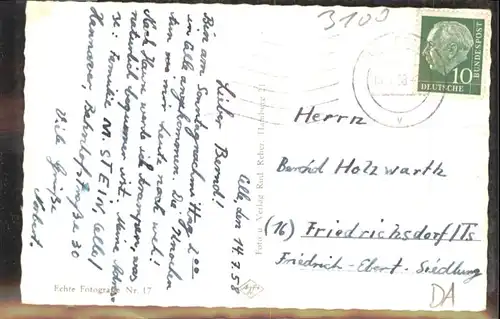 3100
DEUTSCHE
BUNDESPOST
10
Celle, den 14.7.58
Lieber Bernd!
Bin am Sonntagnachmittag
in Celle angekommen. Die Knochen
tun mir heute noch weh!
Nach Hause werde ich trampen, was
natürlich bequemer ist. Meine Adres-
se: Familie W. STEIN, Celle/
Hannover, Bahnhofstraße 30
Viele Grüße
Norbert.
Echte Fotografie Nr. 17
Foto u. Verlag Rud. Reher, Hamburg
Agfa
Herrn
Bernhd Holzwarth
(16) Friedrichsdorf/Ts
Friedrich-Ebert-Siedlung
DA